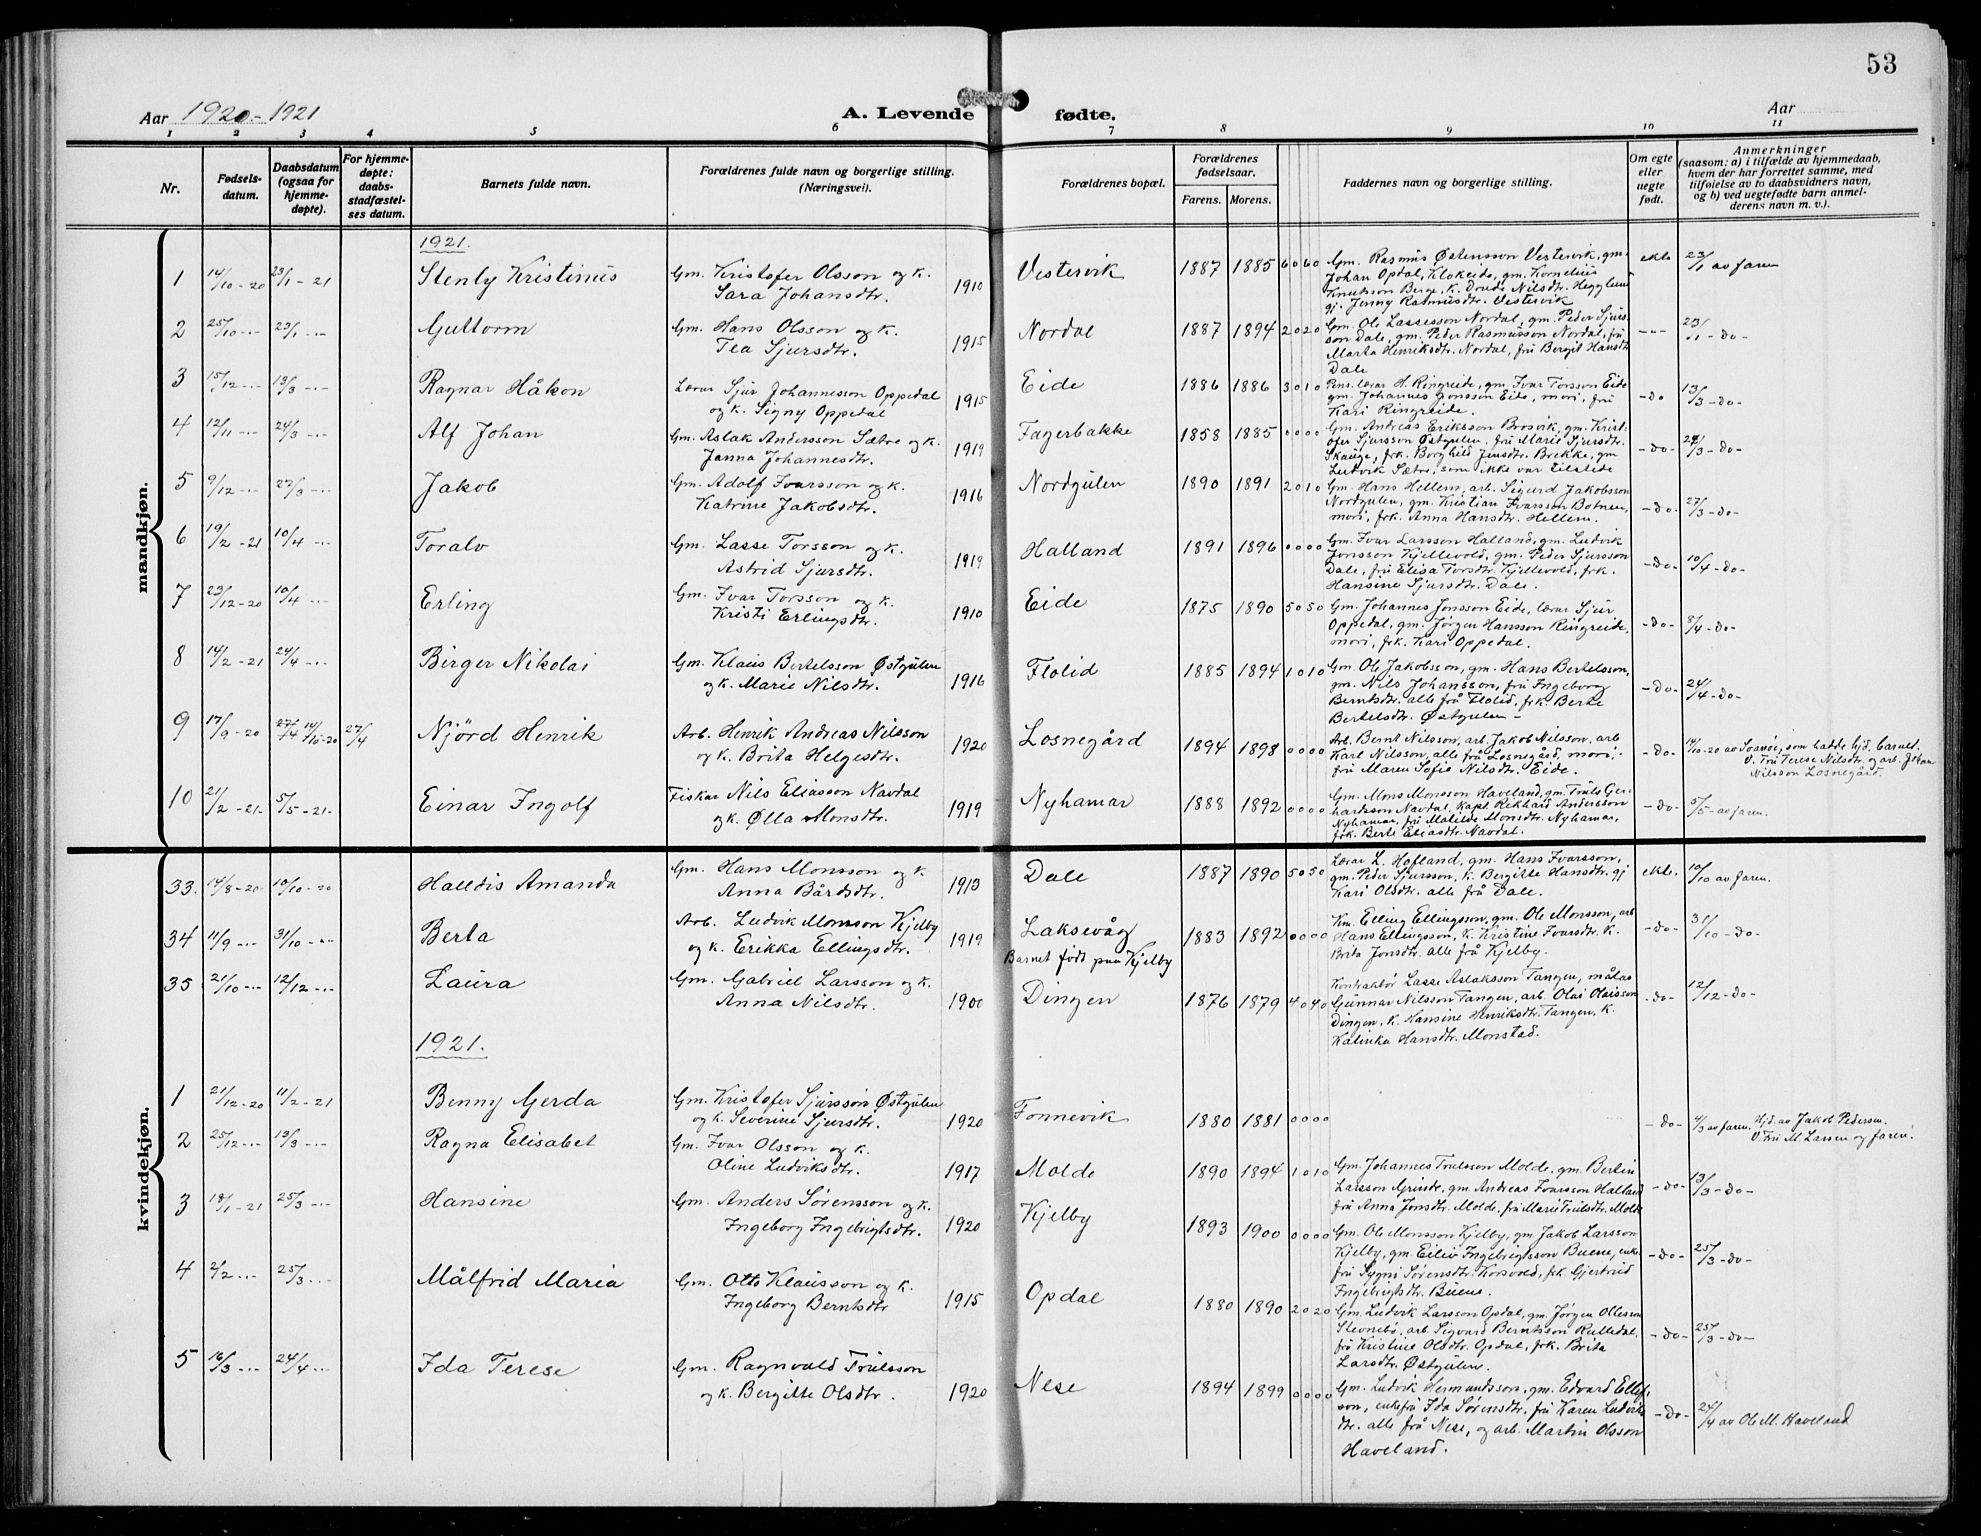 53
Aar 1920.-1921
A. Levende fødte.
Aar
1 2 3 4 5 6 7 8 9 10 11
Nr.
Fødsels-
datum.
Daabsdatum
(ogsaa for
hjemme-
døpte).
For hjemme-
døpte:
daabs-
stadfæstel-
ses datum.
Barnets fulde navn.
Forældrenes fulde navn og borgerlige stilling.
(Næringsvei).
Forældrenes bopæl.
Forældrenes
fødselsaar.
Farens. Morens.
Faddernes navn og borgerlige stilling.
Om egte
eller
uegte
født.
Anmerkninger
(saasom: a) i tilfælde av hjemmedaab,
hvem der har forrettet samme, med
tilføielse av to daabsvidners navn,
og b) ved uegtefødte barn anmel-
derens navn m. v.).
mandkjøn.
1921.
1 14/10-20 23/1-21 Stenly Kristinus Gm. Kristofer Olsson og k. Sara Johansdtr. 1910 Vestervik 1887 1885 6 0 6 0
Gm. Rasmus Østensson Vestervik, gm.
Johan Opdal, Klokeide, gm. Kornelius
Knutsson Berge, k. Dorde Nilsdtr. Hegglund
gj. Jenny Rasmusdtr. Vestervik
ekte 23/1 av faren
2 25/10 -"- 23/1 -"- Guttorm Gm. Hans Olsson og k. Tea Sjursdtr. 1915 Nordal 1887 1894 2 0 2 0
Gm. Ole Lassesson Nordal, gm. Peder Sjurs-
son Dale, gm. Peder Rasmusson Nordal, fru
Marta Henriksdtr. Nordal, fru Bergit Hansdtr
Dale
-"- 23/1 -do-
3 15/12 -"- 13/3 -"- Ragnar Håkon Lærar Sjur Johannesson Oppedal og k. Signy Oppedal 1915 Eide 1886 1886 3 0 1 0
Pens. lærar H. Ringreide, gm. Ivar Torsson Eide
gm. Johannes Jonsson Eide, mori, fru
Kari Ringreide.
-do 13/3 -do-
4 12/11 -"- 24/3 -"- Alf Johan Gm. Aslak Andersson Sætre og k. Janna Johannesdtr. 1919 Fagerbakke 1858 1885 0 0 0 0
Gm. Andreas Eriksson Brosvik, gm. Krist-
ofer Sjursson Østgulen, fru Marie Sjursdtr.
Skauge, frk. Borghild Jensdtr. Brekke, gm
Ludvik Sætre, som ikke var tilstede
-do- 24/3 -do-
5 9/12 -"- 27/3 -"- Jakob Gm. Adolf Ivarsson og k. Katrine Jakobsdtr. 1916 Nordgulen 1890 1891 2 0 1 0
Gm. Hans Hellem, arb. Sigurd Jakobsson
Nordgulen, gm. Kristian Ivarsson Botnen,
mori, frk. Anna Hansdtr. Hellem.
-do- 27/3 -do-
6 19/2 -21 10/4 -"- Toralv Gm. Lasse Torsson og k. Astrid Sjursdtr. 1919 Halland 1891 1896 0 0 0 0
Gm. Ivar Larsson Halland, gm. Ludvik
Jonsson Kjellevold, gm. Peder Sjursson
Dale, fru Elisa Torsdtr. Kjellevold, frk.
Hansine Sjursdtr. Dale.
-do- 10/4 -do-
7 23/12 -20 10/4 -"- Erling Gm. Ivar Torsson og k. Kristi Erlingsdtr. 1910 Eide 1875 1890 5 0 5 0
Gm. Johannes Jonsson Eide, lærar Sjur
Oppedal, gm. Jørgen Hansson Ringreide,
mori, frk. Kari Oppedal.
-do- 8/4 -do-
8 14/2 -21 24/4 -"- Birger Nikolai Gm. Klaus Bertelsson Østgulen og k. Marie Nilsdtr. 1916 Flolid 1885 1894 1 0 1 0
Gm. Ole Jakobsson, gm. Hans Bertelsson,
gm. Nils Johansson, fru Ingeborg
Berntsdtr. alle frå Flolid, frk. Berte
Bertelsdtr. Østgulen -
-do- 24/4 -do-
9 17/9 -20 27/4 14/10-20 27/4 Njörd Henrik Arb. Henrik Andreas Nilsson og k. Brita Helgesdtr. 1920 Losnegård 1894 1898 0 0 0 0
Arb. Bernt Nilsson, arb. Jakob Nilsson, arb
Karl Nilsson, alle frå Losnegård, mori,
fru Maren Sofie Nilsdtr. Eide.
-do- 14/10-20 av Svanöe, som hadde hjd. barnet.
V. Fru Terese Nilsdtr og arb. Johan
Nilsson Losnegård.
10 21/2 -21- 5/5 -21- Einar Ingolf Fiskar Nils Eliasson Navdal og k. Ølla Monsdtr. 1919 Nyhamar 1888 1892 0 0 0 0
Gm. Mons Monsson Haveland, gm. Truls Ger-
hardsson Navdal, Kapt. Rikhard Andersson
Nyhamar, fru Matilde Monsdtr. Nyhamar,
frk. Berte Eliasdtr. Navdal.
-do- 5/5 - av faren.
kvindekjøn.
33. 14/8 -20 10/10 -20 Halldis Amanda Gm. Hans Monsson og k. Anna Bårdsdtr. 1913 Dale 1887 1890 5 0 5 0
Lærar L. Hofland, gm. Hans Ivarsson,
gm. Peder Sjursson, k. Bergitte Hansdtr. gj
Kari Olsdtr. alle frå Dale.
ekte. 10/10 av faren.
34 11/9 -"- 31/10 -"- Berta Arb. Ludvik Monsson Kjelby og k. Erikka Ellingsdtr. 1919 Laksevåg Barnet født paa Kjelby 1883 1892 0 0 0 0
Km. Elling Ellingsson, gm. Ole Monsson, arb
Hans Ellingsson, k. Kristine Ivarsdtr. k.
Brita Jonsdtr. alle frå Kjelby.
-do- 31/10 -do-
35 21/10 -"- 12/12 -"- Laura Gm. Gabriel Larsson og k. Anna Nilsdtr. 1900 Dingen 1876 1879 4 0 4 0
Kontraktör Lasse Aslaksson Tangen, målar
Gunnar Nilsson Tangen, arb. Olai Olaisson
Dingen, k. Hansine Henriksdtr. Tangen, k.
Katinka Hansdtr. Monstad.
-do- 12/12 -do-
1921.
1 21/12 -20 11/2 -21 Benny Gerda Gm. Kristofer Sjursson Østgulen og k. Severine Sjursdtr. 1920 Fonnevik 1880 1881 0 0 0 0
-do- 4/3 av faren. Hjd. av Jakob Pedersen.
V. Fru M. Larsen og faren.
2 25/12 -"- 13/3 -"- Ragna Elisabet Gm. Ivar Olsson og k. Oline Ludviksdtr. 1917 Molde 1890 1894 1 0 1 0
Gm. Johannes Trulsson Molde, gm. Bertin
Larsson Grinde, gm Andreas Ivarsson Halland
fru Anna Jonsdtr. Molde, fru Mari Trulsdtr. Molde
-do- 13/3 -do-
3 18/1 -21 25/3 -"- Hansine Gm. Anders Sørensson og k. Ingeborg Ingebrigtsdtr. 1920 Kjelby 1893 1900 0 0 0 0
Gm. Ole Monsson Kjelby, gm Jakob Larsson
Kjelby, gm. Eiliv Ingebrigtsson Buene, enke
fru Sygni Sørensdtr. Korsvold, frk Gjertrud
Ingebrigtsdtr. Buene.
-do- 25/3 -do-
4 2/2 -"- 25/3 -"- Målfrid Maria Gm. Otto Klausson og k. Ingeborg Berntsdtr 1915 Opdal 1880 1890 2 0 2 0
Gm. Ludvik Larsson Opdal, gm. Jørgen Ollesson
Stevnebø, arb. Sigvard Berntsson Rutledal,
frå Kristine Olsdtr. Opdal, frk. Brita
Larsdtr. Østgulen.
-do- 25/3 -do-
5 16/3 -"- 24/4 -"- Ida Terese Gm. Ragnvald Trulsson og k. Bergitte Olsdtr. 1920 Nese 1894 1899 0 0 0 0
Gm. Ludvik Hermundsson, gm. Edvard Ellef-
son, enkefru Ida Sørensdtr. fru Karen Ludviks
dtr. alle frå Nese, og arb. Martin Olsson
Haveland.
-do- 24/4 av Ole M. Haveland